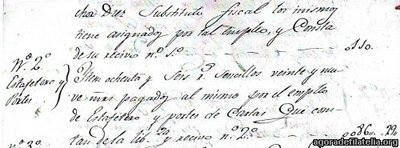 Diez Substituto fiscal los mismos
tiene asignados por tal empleo, y Consta
de su recivo nº 1º
110.
Nº 2º
Estafetero y
Portes
Item ochenta y Seis rº Sencillos veinte y nu-
eve mrs pagados al mismo por el empleo
de Estafetero y portes de Cartas Que cons-
tan de la lib.za y recivo nº 2º
86 " 29
Nº 3º
agoradefilatelia.org